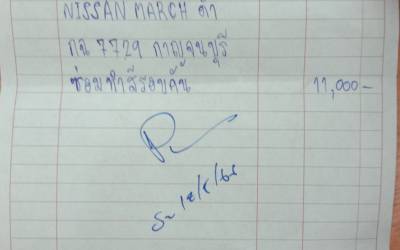 NISSAN MARCH ดำ
กฉ 7729 กาญจนบุรี
ซ่อมทำสีรอบคัน 11,000-